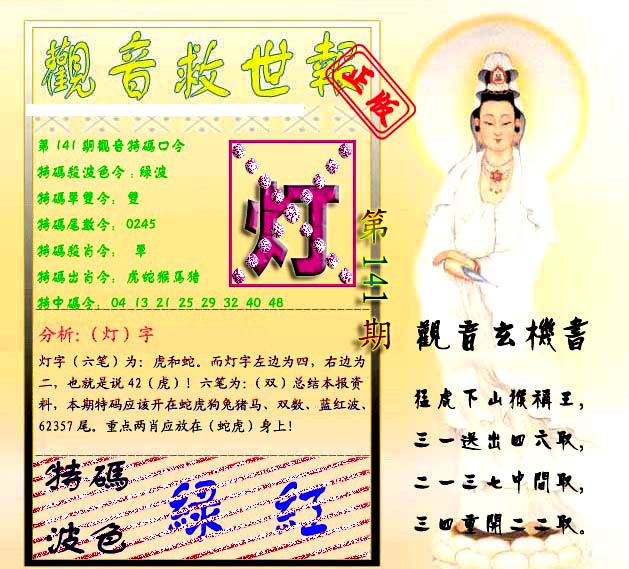 觀音救世報
正版
第141期觀音特碼口令
特碼殺波色令:綠波
特碼單雙令: 雙
特碼尾數令: 0245
特碼殺肖令: 單
特碼出肖令: 虎蛇猴馬豬
特中碼令: 04 13 21 25 29 32 40 48
灯
第141期
分析:(灯)字
灯字(六笔)为:虎和蛇。而灯字左边为四,右边为
二,也就是说42(虎)!六笔为:(双)总结本报资
料,本期特码应该开在蛇虎狗兔猪马、双数、蓝红波、
62357尾。重点两肖应放在(蛇虎)身上!
特碼
波色
綠 紅
觀音玄機書
猛虎下山猴稱王,
三一送出四六取,
二一三七中間取,
三四重開二二取。